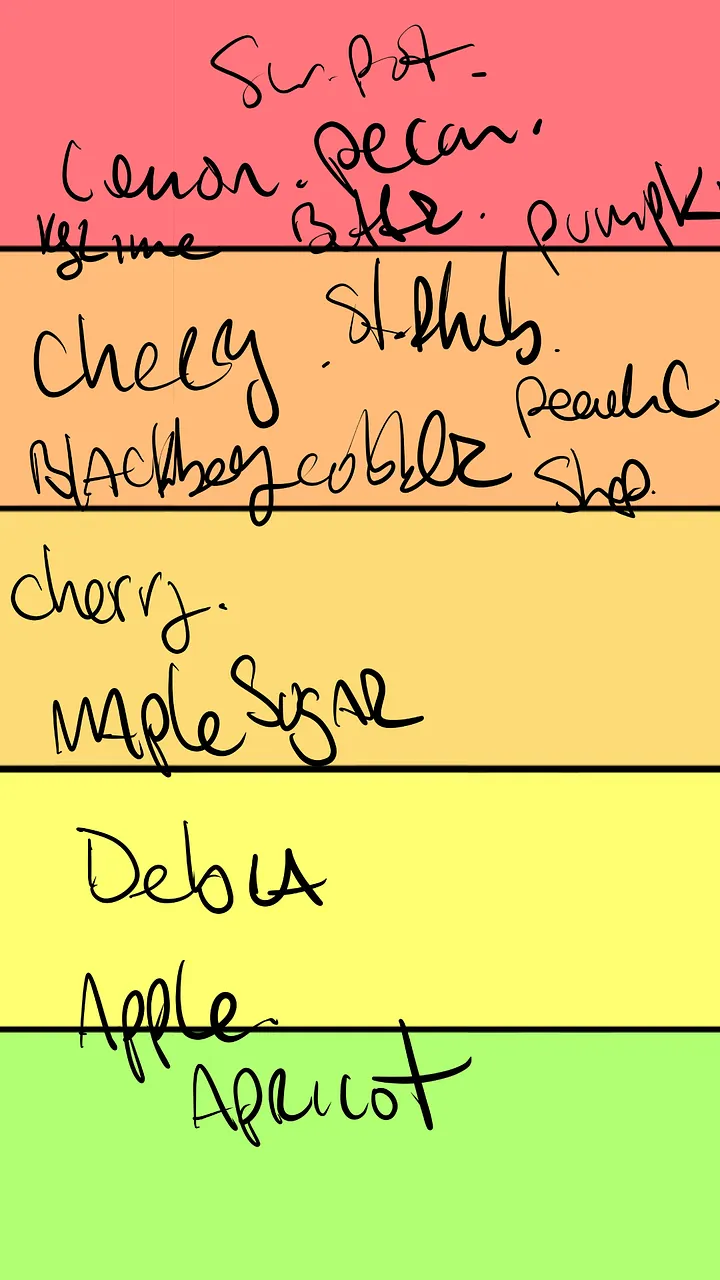 Sw. Pot.
Lemon. Pecan.
KyLime Butter. Pumpk
Cherry. St. Rhub.
PeachC
Blackberry cobbler Shep.
cherry.
Maple Sugar
Apple.
APRICOT